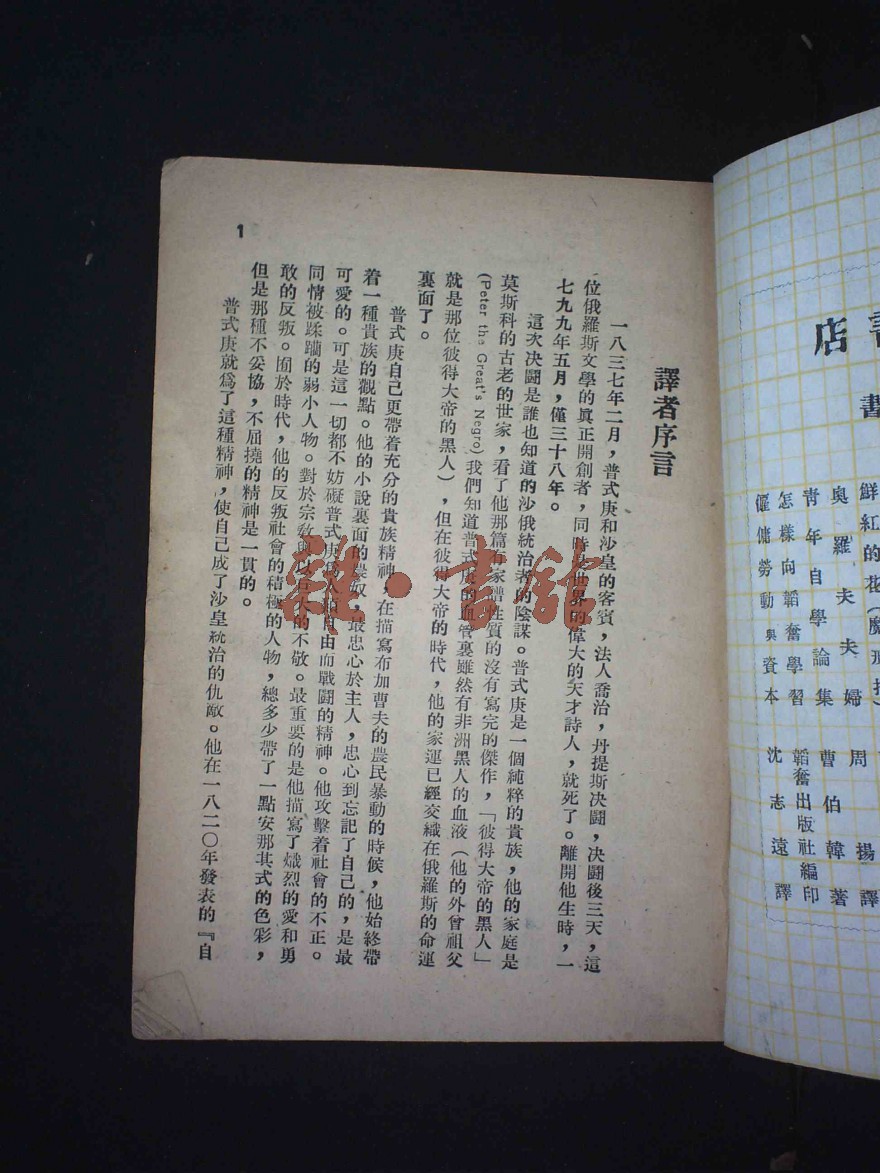 店
書
鮮紅的花
奧羅夫夫婦 周揚譯
青年自學論集 曹伯韓著
怎樣向韜奮學習 韜奮出版社編印
僱傭勞動與資本 沈志遠譯
譯者序言
一八三七年二月，普式庚和沙皇的客賓，法人喬治，丹提斯决鬪，决鬪後三天，這
位俄羅斯文學的眞正開創者，同時是世界的偉大的天才詩人，就死了。離開他生時，一
七九九年五月，僅三十八年。
這次决鬪是誰也知道的沙俄統治者的陰謀。普式庚是一個純粹的貴族，他的家庭是
莫斯科的古老的世家，看了他那篇有家譜性質的沒有寫完的傑作，「彼得大帝的黑人」
(Peter the Great's Negro)我們知道普式庚的血管裏雖然有非洲黑人的血液（他的外曾祖父
就是那位彼得大帝的黑人），但在彼得大帝的時代，他的家運已經交織在俄羅斯的命運
裏面了。
普式庚自己更帶着充分的貴族精神，在描寫布加曹夫的農民暴動的時候，他始終帶
着一種貴族的觀點。他的小說裏面的農奴，最忠心於主人，忠心到忘記了自己的，是最
可愛的。可是這一切都不妨礙普式庚爲人類自由而戰鬪的精神。他攻擊着社會的不正。
同情被蹂躪的弱小人物。對於宗敎與以右大的不敬。最重要的是他描寫了熾烈的愛和勇
敢的反叛。囿於時代，他的反叛社會的積極的人物，總多少帶了一點安那其式的色彩，
但是那種不妥協，不屈撓的精神是一貫的。
普式庚就爲了這種精神，使自己成了沙皇統治的仇敵。他在一八二〇年發表的『自
1
雜·書館